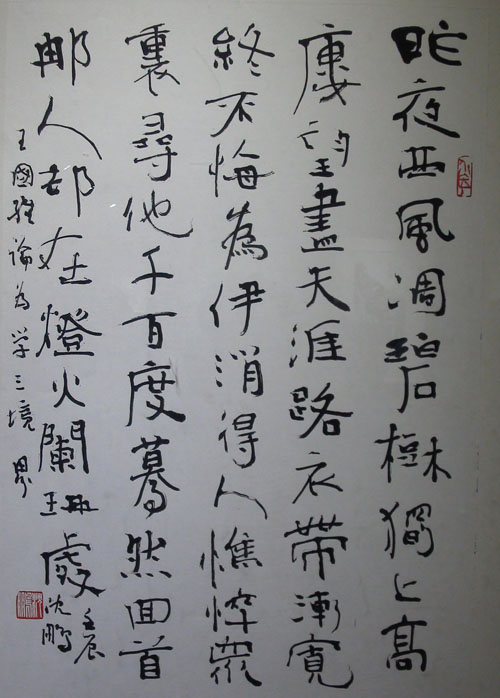 昨夜西風凋碧樹獨上高
廔望盡天涯路衣帶漸寬
終不悔為伊消得人憔悴眾
裏尋他千百度驀然回首
那人却在燈火闌珊處
壬辰
沈鵬
王國維論為学三境界